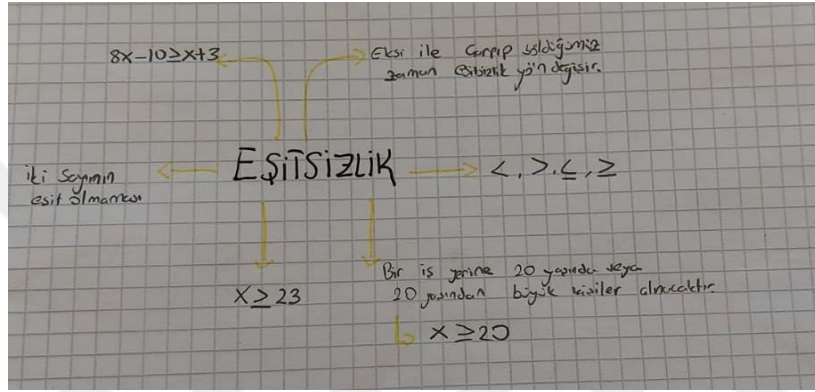 8x-10≥x+3
Eksi ile Çarpıp böldüğümüz
zaman eşitsizlik yön değişir.
EŞİTSİZLİK
<, >, ≤, ≥
iki Sayının
eşit olmaması
x ≥ 23
Bir iş yerine 20 yaşında veya
20 yaşından büyük kişiler alınacaktır.
x ≥ 20